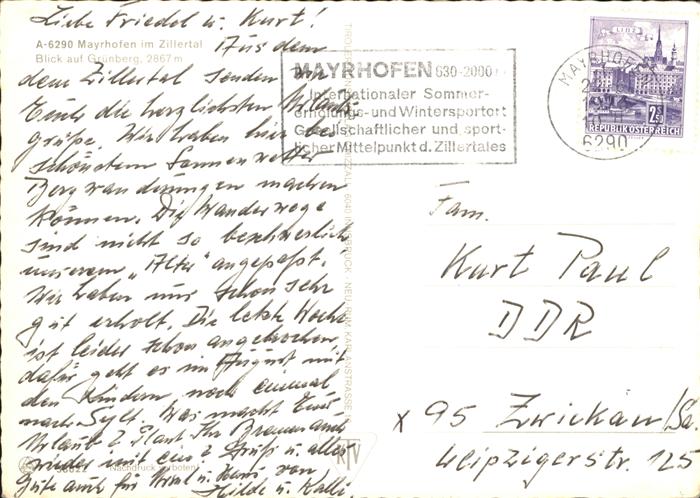 Liebe Friedel u. Kurt!
A-6290 Mayrhofen im Zillertal
Blick auf Grünberg, 2867 m
Aus dem
dem Zillertal senden wir
Euch die herzlichsten Urlaubs
grüße. Wir haben hier bei
schönstem Sonnenwetter
Bergwanderungen machen
können. Die Wanderwege
sind nicht so beschwerlich
unserem "Alter" angepaßt.
Wir haben uns schon sehr
gut erholt. Die letzte Woche
ist leider schon angebrochen,
dafür geht es im August mit
den Kindern noch einmal
nach Sylt. Was macht Euer
Urlaub? Ihr
wieder mit ein? Grüß u. alles
Gute auch für u. von
Hilde u. Kalli.
Nachdruck verboten!
MAYRHOFEN 630-2000 m
Internationaler Sommer-
erholungs- und Wintersportort
Gesellschaftlicher und sport-
licher Mittelpunkt d. Zillertales
MAYRHOFEN
6290
LINZ
2.50
REPUBLIK ÖSTERREICH
Fam.
Kurt Paul
DDR
x 95 Zwickau/Sa.
Leipzigerstr. 125